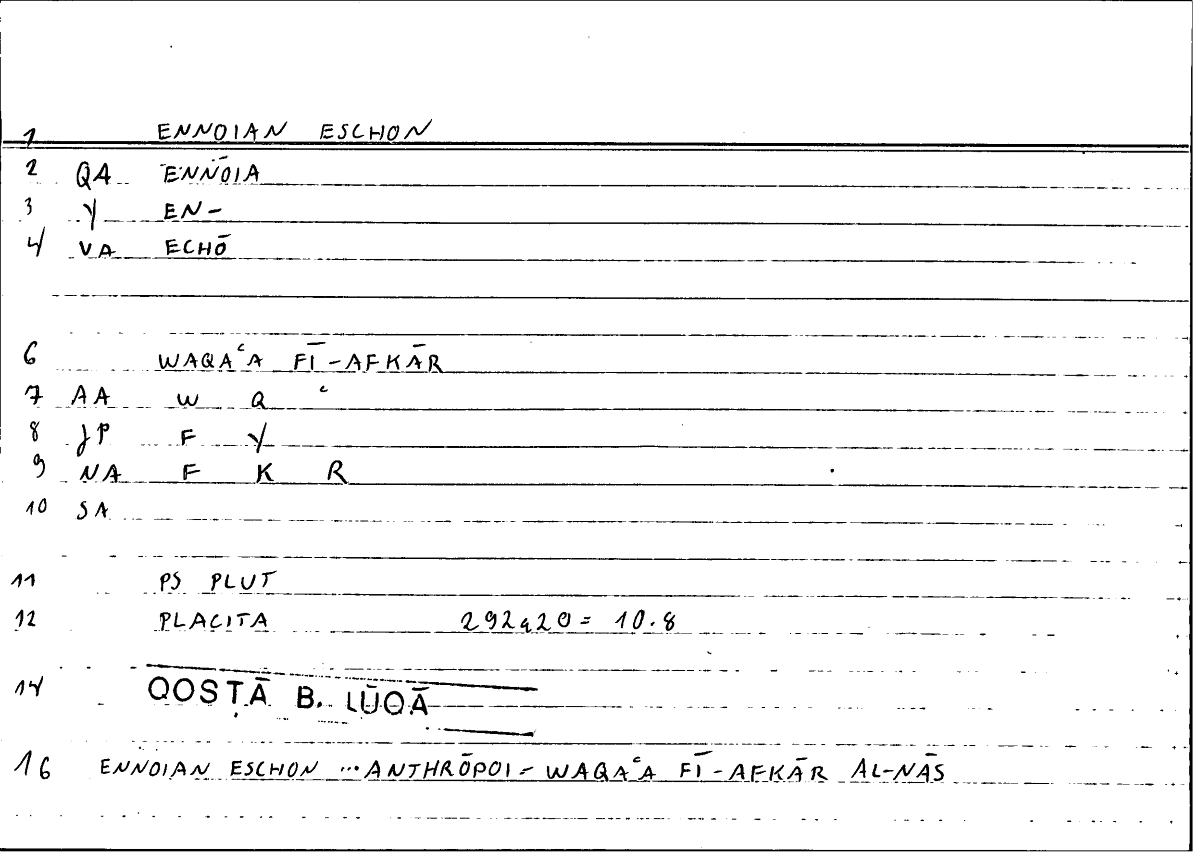 1 ENNOIAN ESCHON
2 QA ENNOIA
3 Y EN-
4 VA ECHŌ
6 WAQAʿA FĪ-AFKĀR
7 AA W Q ʿ
8 JP F Y
9 NA F K R
10 SA
11 PS PLUT
12 PLACITA 292a20 = 10.8
14 QOSṬĀ B. LŪQĀ
16 ENNOIAN ESCHON ... ANTHRŌPOI - WAQAʿA FĪ-AFKĀR AL-NĀS